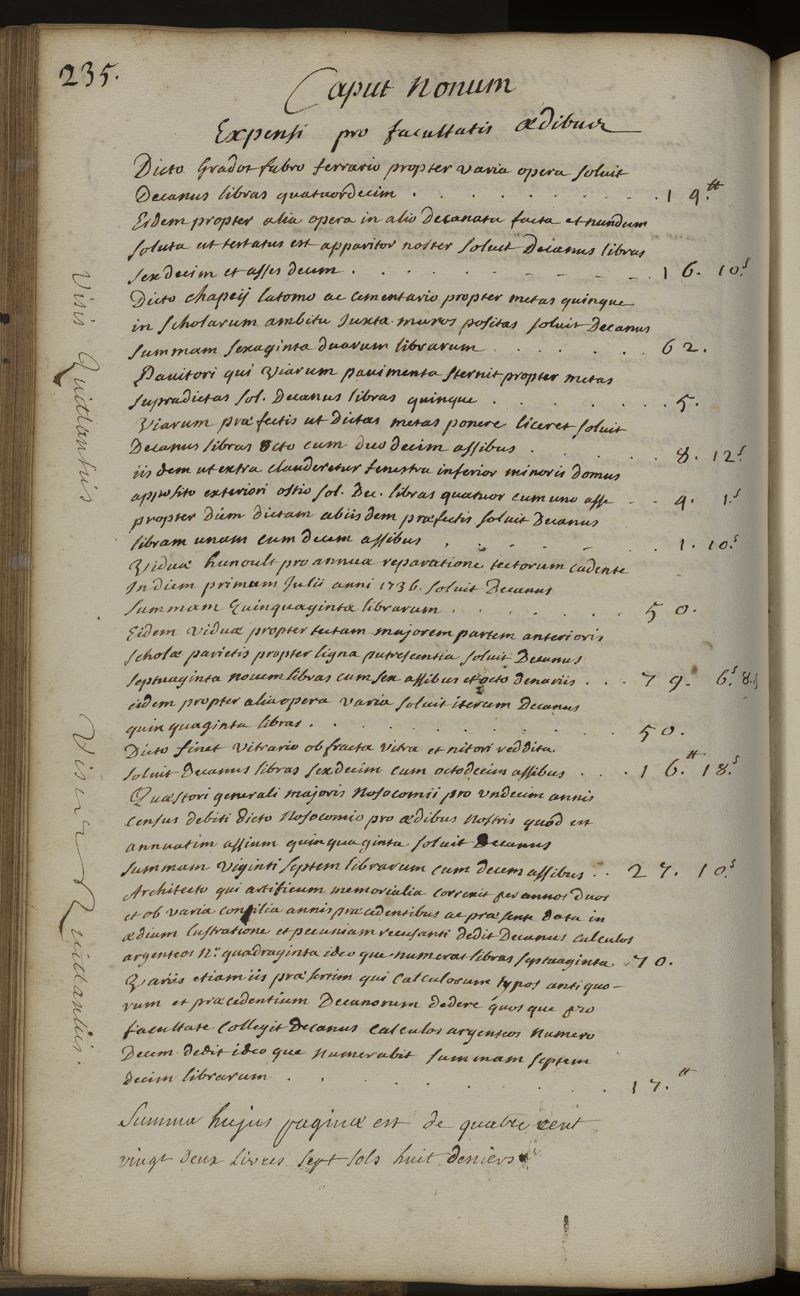 235.
Caput Nonum
Expensi pro facultatis ædibus
Dicto Gradot fabro ferrario propter varia opera soluit
Decanus libras quatuordecim . . . . . . . . . 14.tt
Eidem propter alia opera in alio decanatu facta et nundum
soluta ut testatus est apparitor noster soluit Decanus libras
sexdecim et asses decem . . . . . . . . 16. 10.s
Dicto chapeij latomo ac cementario propter metas quinque
in scholarum ambitu juxta muros positas soluit Decanus
summam sexaginta duarum librarum . . . . . . 62.
Pavitori qui viarum pavimenta sternit propter metas
supradictas sol. Decanus libras quinque . . . . . . 5.
Viarum præfectis ut dictas metas ponere liceret soluit
Decanus libras octo cum duodecim assibus . . . . . 8. 12.s
iis dem ut extra clauderetur fenestra inferior minoris domus
apposito exteriori ostio sol. Dec. libras quatuor cum uno asse - - 4. 1.s
propter dictam ab iisdem præfectis soluit Decanus
libram unam cum decem assibus . . . . . . 1. 10.s
Viduæ hunoult pro annua reparatione tectorum cadente
In diem primum Julii anni 1736. soluit Decanus
summam quinquaginta librarum . . . . . . 50.
Eidem viduæ propter tectam majorem partem anterioris
scholæ parietis propter ligna putrescentia soluit Decanus
septuaginta novem libras cum sex assibus et octo denariis . . . 79. 6.s 8.d
eidem propter alia opera varia soluit iterum Decanus
quinquaginta libras . . . . . . . . 50.
Dicto finet vitrario ob fracta vitra et nitori reddita
soluit Decanus libras sexdecim cum octodecim assibus . . . 16.tt 18.s
Quæstori generali majoris Nosocomii pro undecim annis
census debiti dicto Nosocomio pro ædibus nostris quod est
annuatim assium quinquaginta soluit Decanus
summam viginti septem librarum cum decem assibus . . 27. 10.s
Architecto qui artificum memorialia correxit per annos duos
et ob varia consilia annis præcedentibus ac præsente data in
ædium lustratione et pecuniam recusanti dedit Decanus calculos
argenteos N.º quadraginta ideo que numerat libras septuaginta . 70.
Variis etiam iis præsertim qui calculorum typos antiquo-
rum et præcedentium Decanorum dedere quos que pro
facultate collegit Decanus calculos argenteos numero
Decem dedit ideo que numerabit summam septem
decim librarum . . . . . . . . 17.tt
Summa hujus paginæ est de quatre cent
vingt deux livres sept sols huit deniers
Visis Quittantiis
Visis Quittantiis.